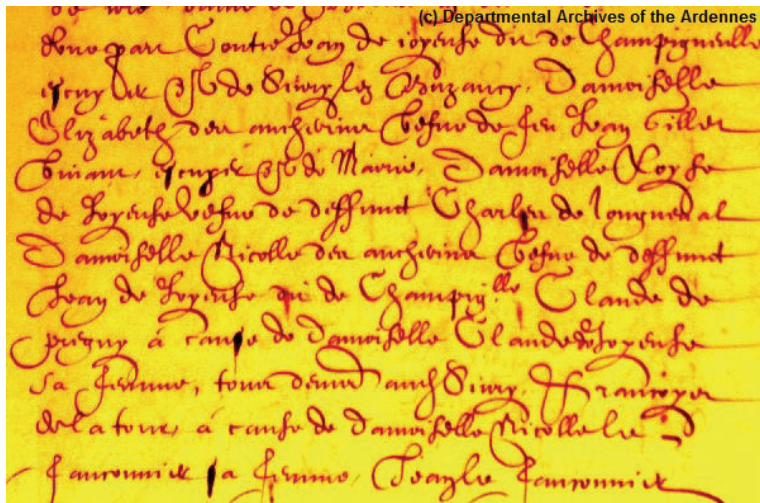 (c) Departmental Archives of the Ardennes
d'une part Contre Jean de ioyeuse dit de Champigneulle
escuyer Sr de Sivry lez Buzancy, Damoiselle
Elizabeth des ancherins vefve de feu Jean Gilles
vivant, escuyer Sr de Marie, Damoiselle Loyse
de Joyeuse vefve de deffunct Charles de longueval
Damoiselle Nicolle des ancherins vefve de deffunct
Jean de Joyeuse dit de Champig.lle Claude de
à cause de damoiselle Claude de Joyeuse
sa femme, tous audt Sivry, Francoys
de la tour, à cause de damoiselle Nicolle le
fauconnier sa femme, Jean le fauconnier